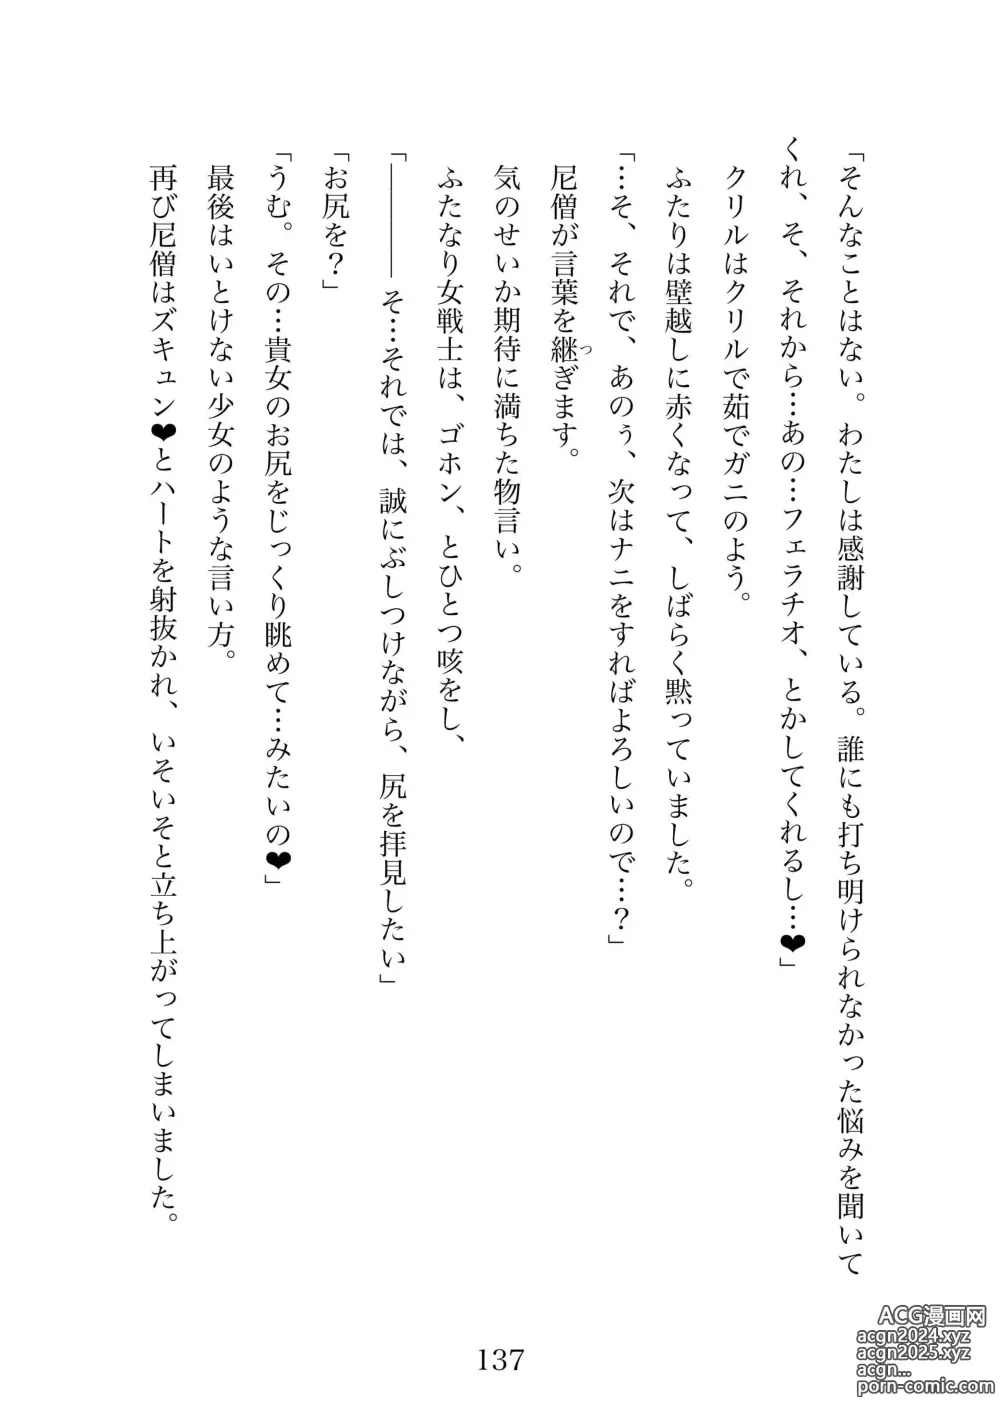 「そんなことはない。わたしは感謝している。誰にも打ち明けられなかった悩みを聞いて
くれ、そ、それから…あの…フェラチオ、とかしてくれるし…❤」
クリルはクリルで茹でガニのよう。
ふたりは壁越しに赤くなって、しばらく黙っていました。
「…そ、それで、あのぅ、次はナニをすればよろしいので…？」
尼僧が言葉を継ぎます。
つ
気のせいか期待に満ちた物言い。
ふたなり女戦士は、ゴホン、とひとつ咳をし、
「――――そ…それでは、誠にぶしつけながら、尻を拝見したい」
「お尻を？」
「うむ。その…貴女のお尻をじっくり眺めて…みたいの❤」
最後はいとけない少女のような言い方。
再び尼僧はズキュン❤とハートを射抜かれ、いそいそと立ち上がってしまいました。
137
ACG漫画网
acgn2024.xyz
acgn2025.xyz
acgn...
porn-comic.com